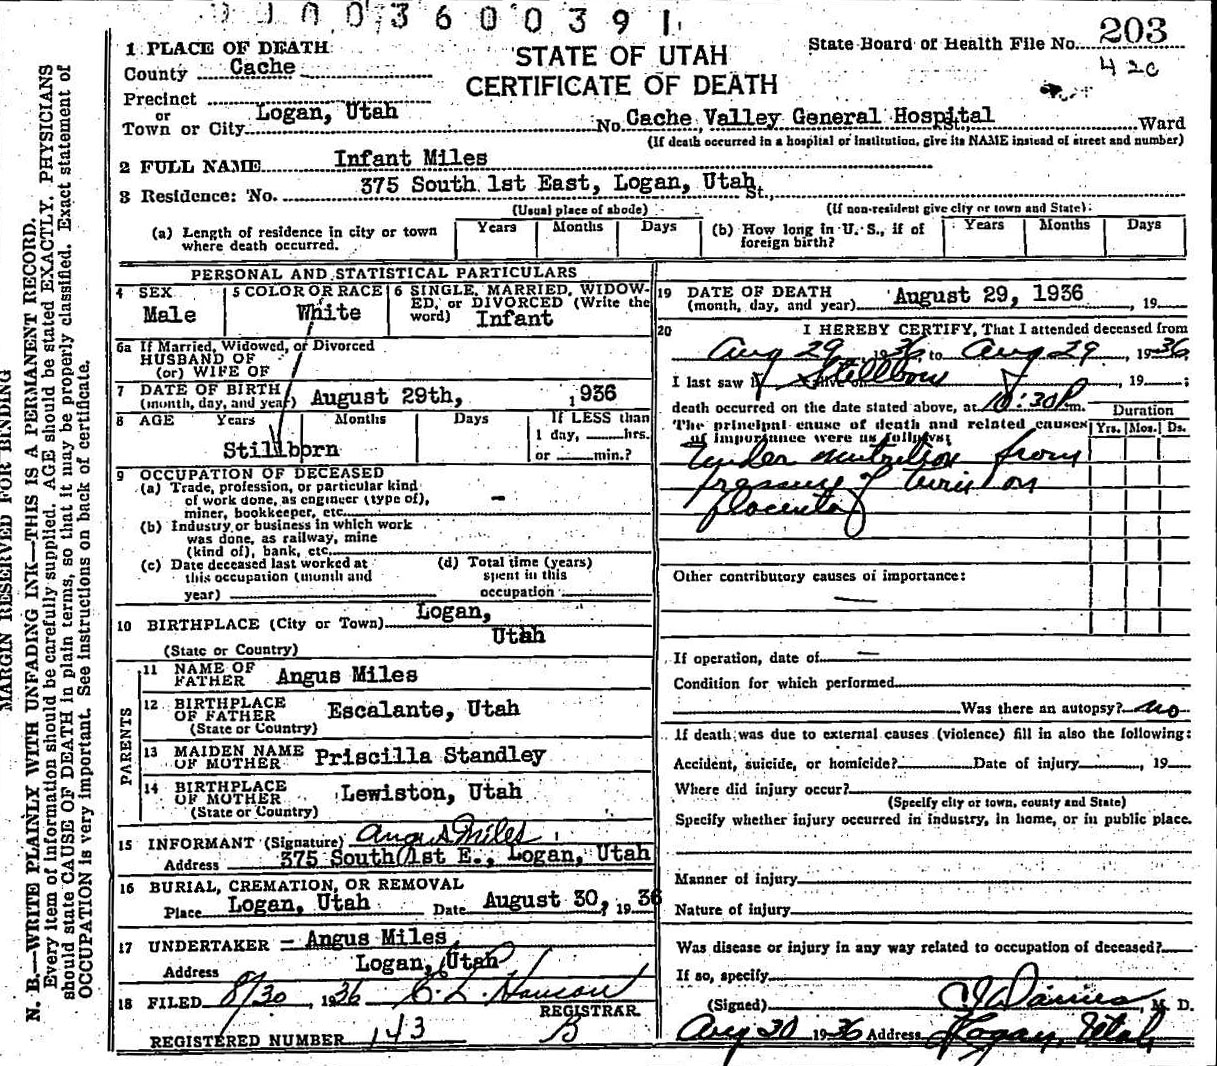 003600391
1 PLACE OF DEATH
County Cache
Precinct
or
Town or City Logan, Utah
STATE OF UTAH
CERTIFICATE OF DEATH
State Board of Health File No. 203
42c
No. Cache Valley General Hospital St., Ward
(If death occurred in a hospital or institution, give its NAME instead of street and number)
2 FULL NAME Infant Miles
3 Residence: No. 375 South 1st East, Logan, Utah St.,
(Usual place of abode) (If non-resident give city or town and State)
(a) Length of residence in city or town where death occurred. Years Months Days
(b) How long in U. S., if of foreign birth? Years Months Days
PERSONAL AND STATISTICAL PARTICULARS
4 SEX
Male
5 COLOR OR RACE
White
6 SINGLE, MARRIED, WIDOWED, or DIVORCED (Write the word) Infant
6a If Married, Widowed, or Divorced
HUSBAND OF
(or) WIFE OF
7 DATE OF BIRTH
(month, day, and year) August 29th, 1936
8 AGE Years Months Days If LESS than
1 day, hrs.
or min.?
Stillborn
9 OCCUPATION OF DECEASED
(a) Trade, profession, or particular kind
of work done, as engineer (type of),
miner, bookkeeper, etc. -
(b) Industry or business in which work
was done, as railway, mine
(kind of), bank, etc.
(c) Date deceased last worked at
this occupation (month and
year)
(d) Total time (years)
spent in this
occupation
10 BIRTHPLACE (City or Town) Logan,
(State or Country) Utah
PARENTS
11 NAME OF FATHER Angus Miles
12 BIRTHPLACE OF FATHER Escalante, Utah
(State or Country)
13 MAIDEN NAME OF MOTHER Priscilla Standley
14 BIRTHPLACE OF MOTHER Lewiston, Utah
(State or Country)
15 INFORMANT (Signature) Angus Miles
Address 375 South 1st E., Logan, Utah
16 BURIAL, CREMATION, OR REMOVAL
Place Logan, Utah Date August 30, 1936
17 UNDERTAKER - Angus Miles
Address Logan, Utah
18 FILED 8/30, 1936 C. L. Hanson
REGISTRAR
REGISTERED NUMBER 143 B
19 DATE OF DEATH
(month, day, and year) August 29, 1936, 19
20 I HEREBY CERTIFY, That I attended deceased from
Aug 29, 1936, to Aug 29, 1936
I last saw Stillborn, 19 ;
death occurred on the date stated above, at 10:30 P m.
The principal cause of death and related causes
of importance were as follows:
Duration
Yrs. Mos. Ds.
Under nutrition from
Pressure of twin on
Placenta
Other contributory causes of importance:
—
If operation, date of —
Condition for which performed
Was there an autopsy? no
If death was due to external causes (violence) fill in also the following:
Accident, suicide, or homicide? Date of injury, 19
Where did injury occur?
(Specify city or town, county and State)
Specify whether injury occurred in industry, in home, or in public place.
Manner of injury
Nature of injury
Was disease or injury in any way related to occupation of deceased?
If so, specify
(Signed) M. D.
Aug 30 1936 Address Logan, Utah
MARGIN RESERVED FOR BINDING
N. B.—WRITE PLAINLY WITH UNFADING INK—THIS IS A PERMANENT RECORD.
Every item of information should be carefully supplied. AGE should be stated EXACTLY. PHYSICIANS
should state CAUSE OF DEATH in plain terms, so that it may be properly classified. Exact statement of
OCCUPATION is very important. See instructions on back of certificate.